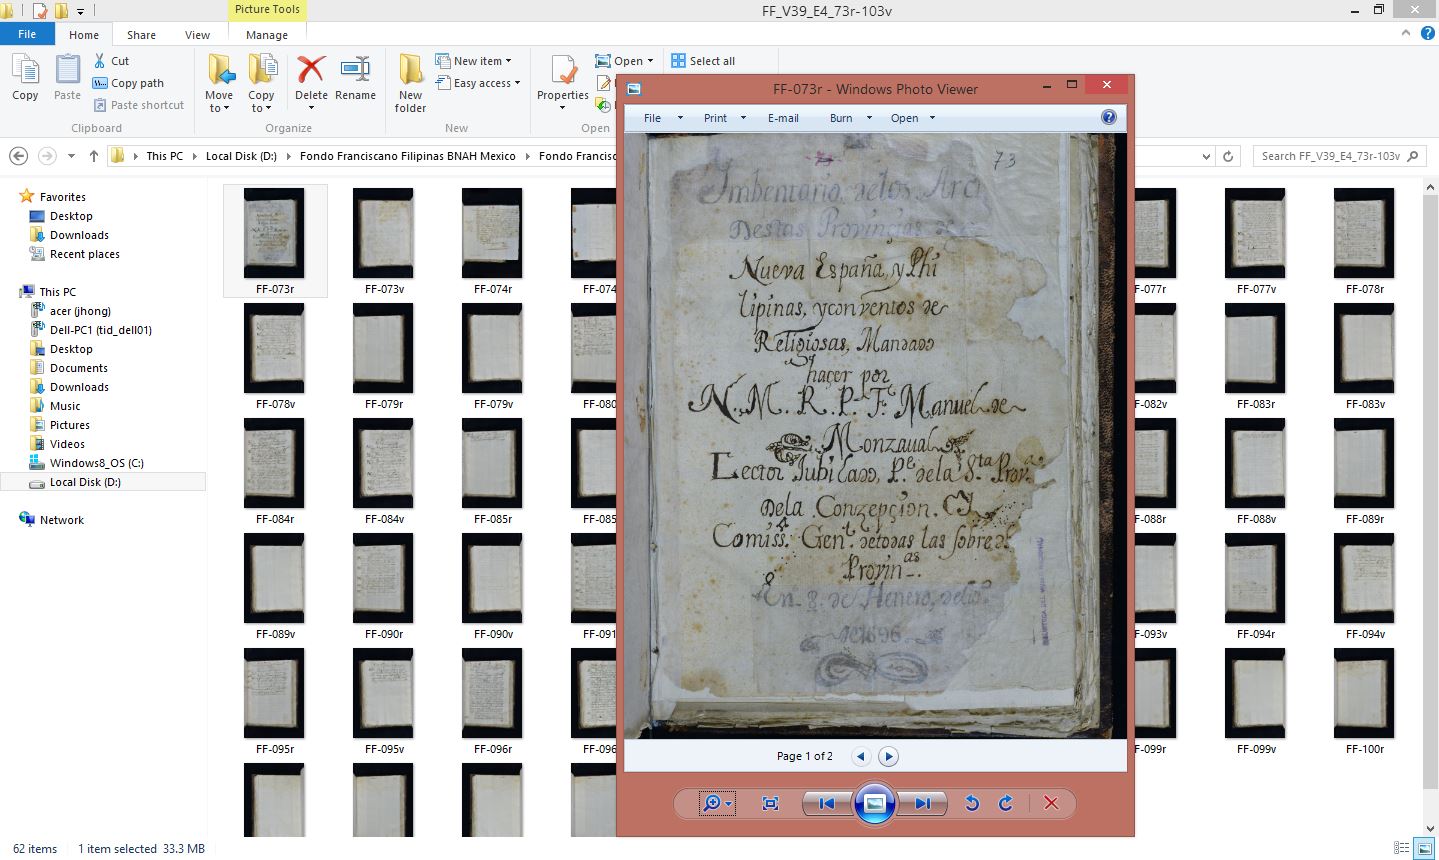 Picture Tools
FF_V39_E4_73r-103v
File
Home
Share
View
Manage
Copy
Paste
Cut
Copy path
Paste shortcut
Clipboard
Move to
Copy to
Delete
Rename
Organize
New folder
New item
Easy access
New
Properties
Open
Open
Select all
This PC
Local Disk (D:)
Fondo Franciscano Filipinas BNAH Mexico
Search FF_V39_E4_73r-103v
Favorites
Desktop
Downloads
Recent places
This PC
acer (jhong)
Dell-PC1 (tid_dell01)
Desktop
Documents
Downloads
Music
Pictures
Videos
Windows8_OS (C:)
Local Disk (D:)
Network
FF-073r
FF-073v
FF-074r
FF-077r
FF-077v
FF-078r
FF-078v
FF-079r
FF-079v
FF-082v
FF-083r
FF-083v
FF-084r
FF-084v
FF-085r
FF-088r
FF-088v
FF-089r
FF-089v
FF-090r
FF-090v
FF-093v
FF-094r
FF-094v
FF-095r
FF-095v
FF-096r
FF-099r
FF-099v
FF-100r
FF-073r - Windows Photo Viewer
File
Print
E-mail
Burn
Open
73
Imbentario, delos Arc
Destas Provinçias
Nueva España, y Phi
lipinas, y conventos de
Religiosas, Mandado
haçer por
N. M. R. P. Fr. Manuel de
Monzaval
Lector Jubilado, Pe. de la Sta. Prova.
Dela Conzepçion.
Comiss. Genl. de todas las sobred.
Provinas.
En 8. de Henero,
de 1696
Page 1 of 2
62 items
1 item selected 33.3 MB